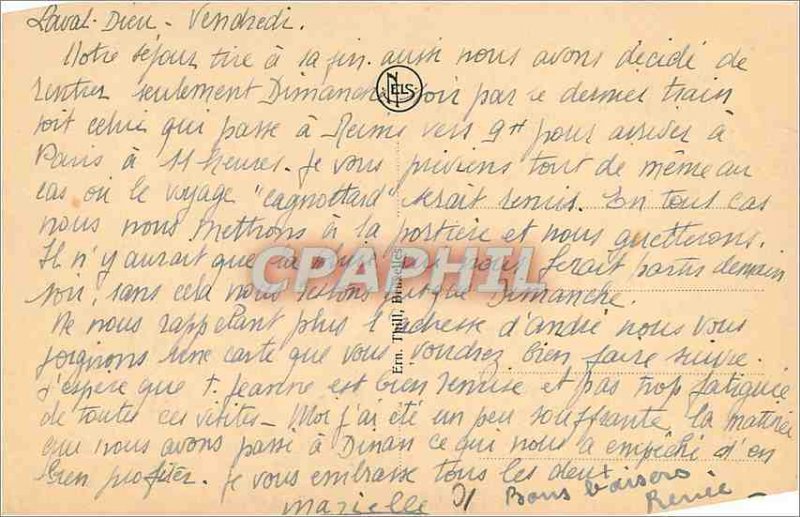 Laval-Dieu - Vendredi.
Notre séjour tire à sa fin. aussi nous avons décidé de
rentrer seulement Dimanche soir par le dernier train
soit celui qui passe à Reims vers 9H pour arriver à
Paris à 11 heures. Je vous préviens tout de même au
cas où le voyage "cagnottard" serait remis. En tout cas
nous nous mettrons à la portière et nous guetterons.
Il n'y aurait que la qui nous ferait partir demain
soir, sans cela nous restons jusque Dimanche.
Ne nous rappelant plus l'adresse d'andré nous vous
joignons une carte que vous voudrez bien faire suivre.
J'espère que t. Jeanne est bien remise et pas trop fatiguée
de toutes ces visites - Moi j'ai été un peu souffrante la matinée
que nous avons passé à Dinan ce qui nous a empêché d'en
bien profiter. Je vous embrasse tous les deux
Marielle Bons baisers
Renée
NELS
Ern. Thill, Bruxelles
CPAPHIL